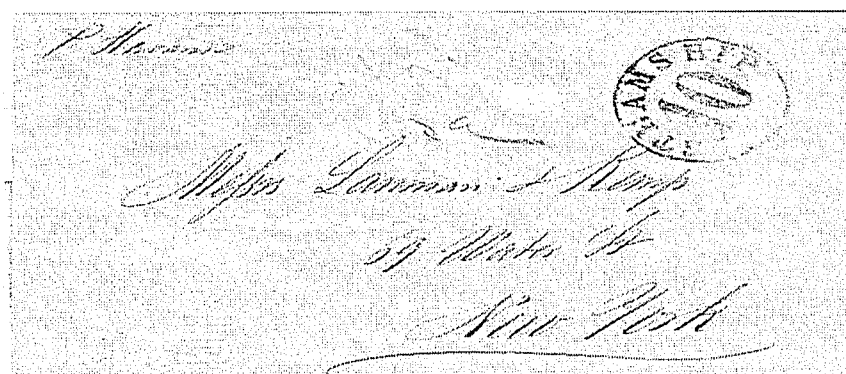 STEAMSHIP
10
Messrs Lanman & Kemp
69 Water St
New York